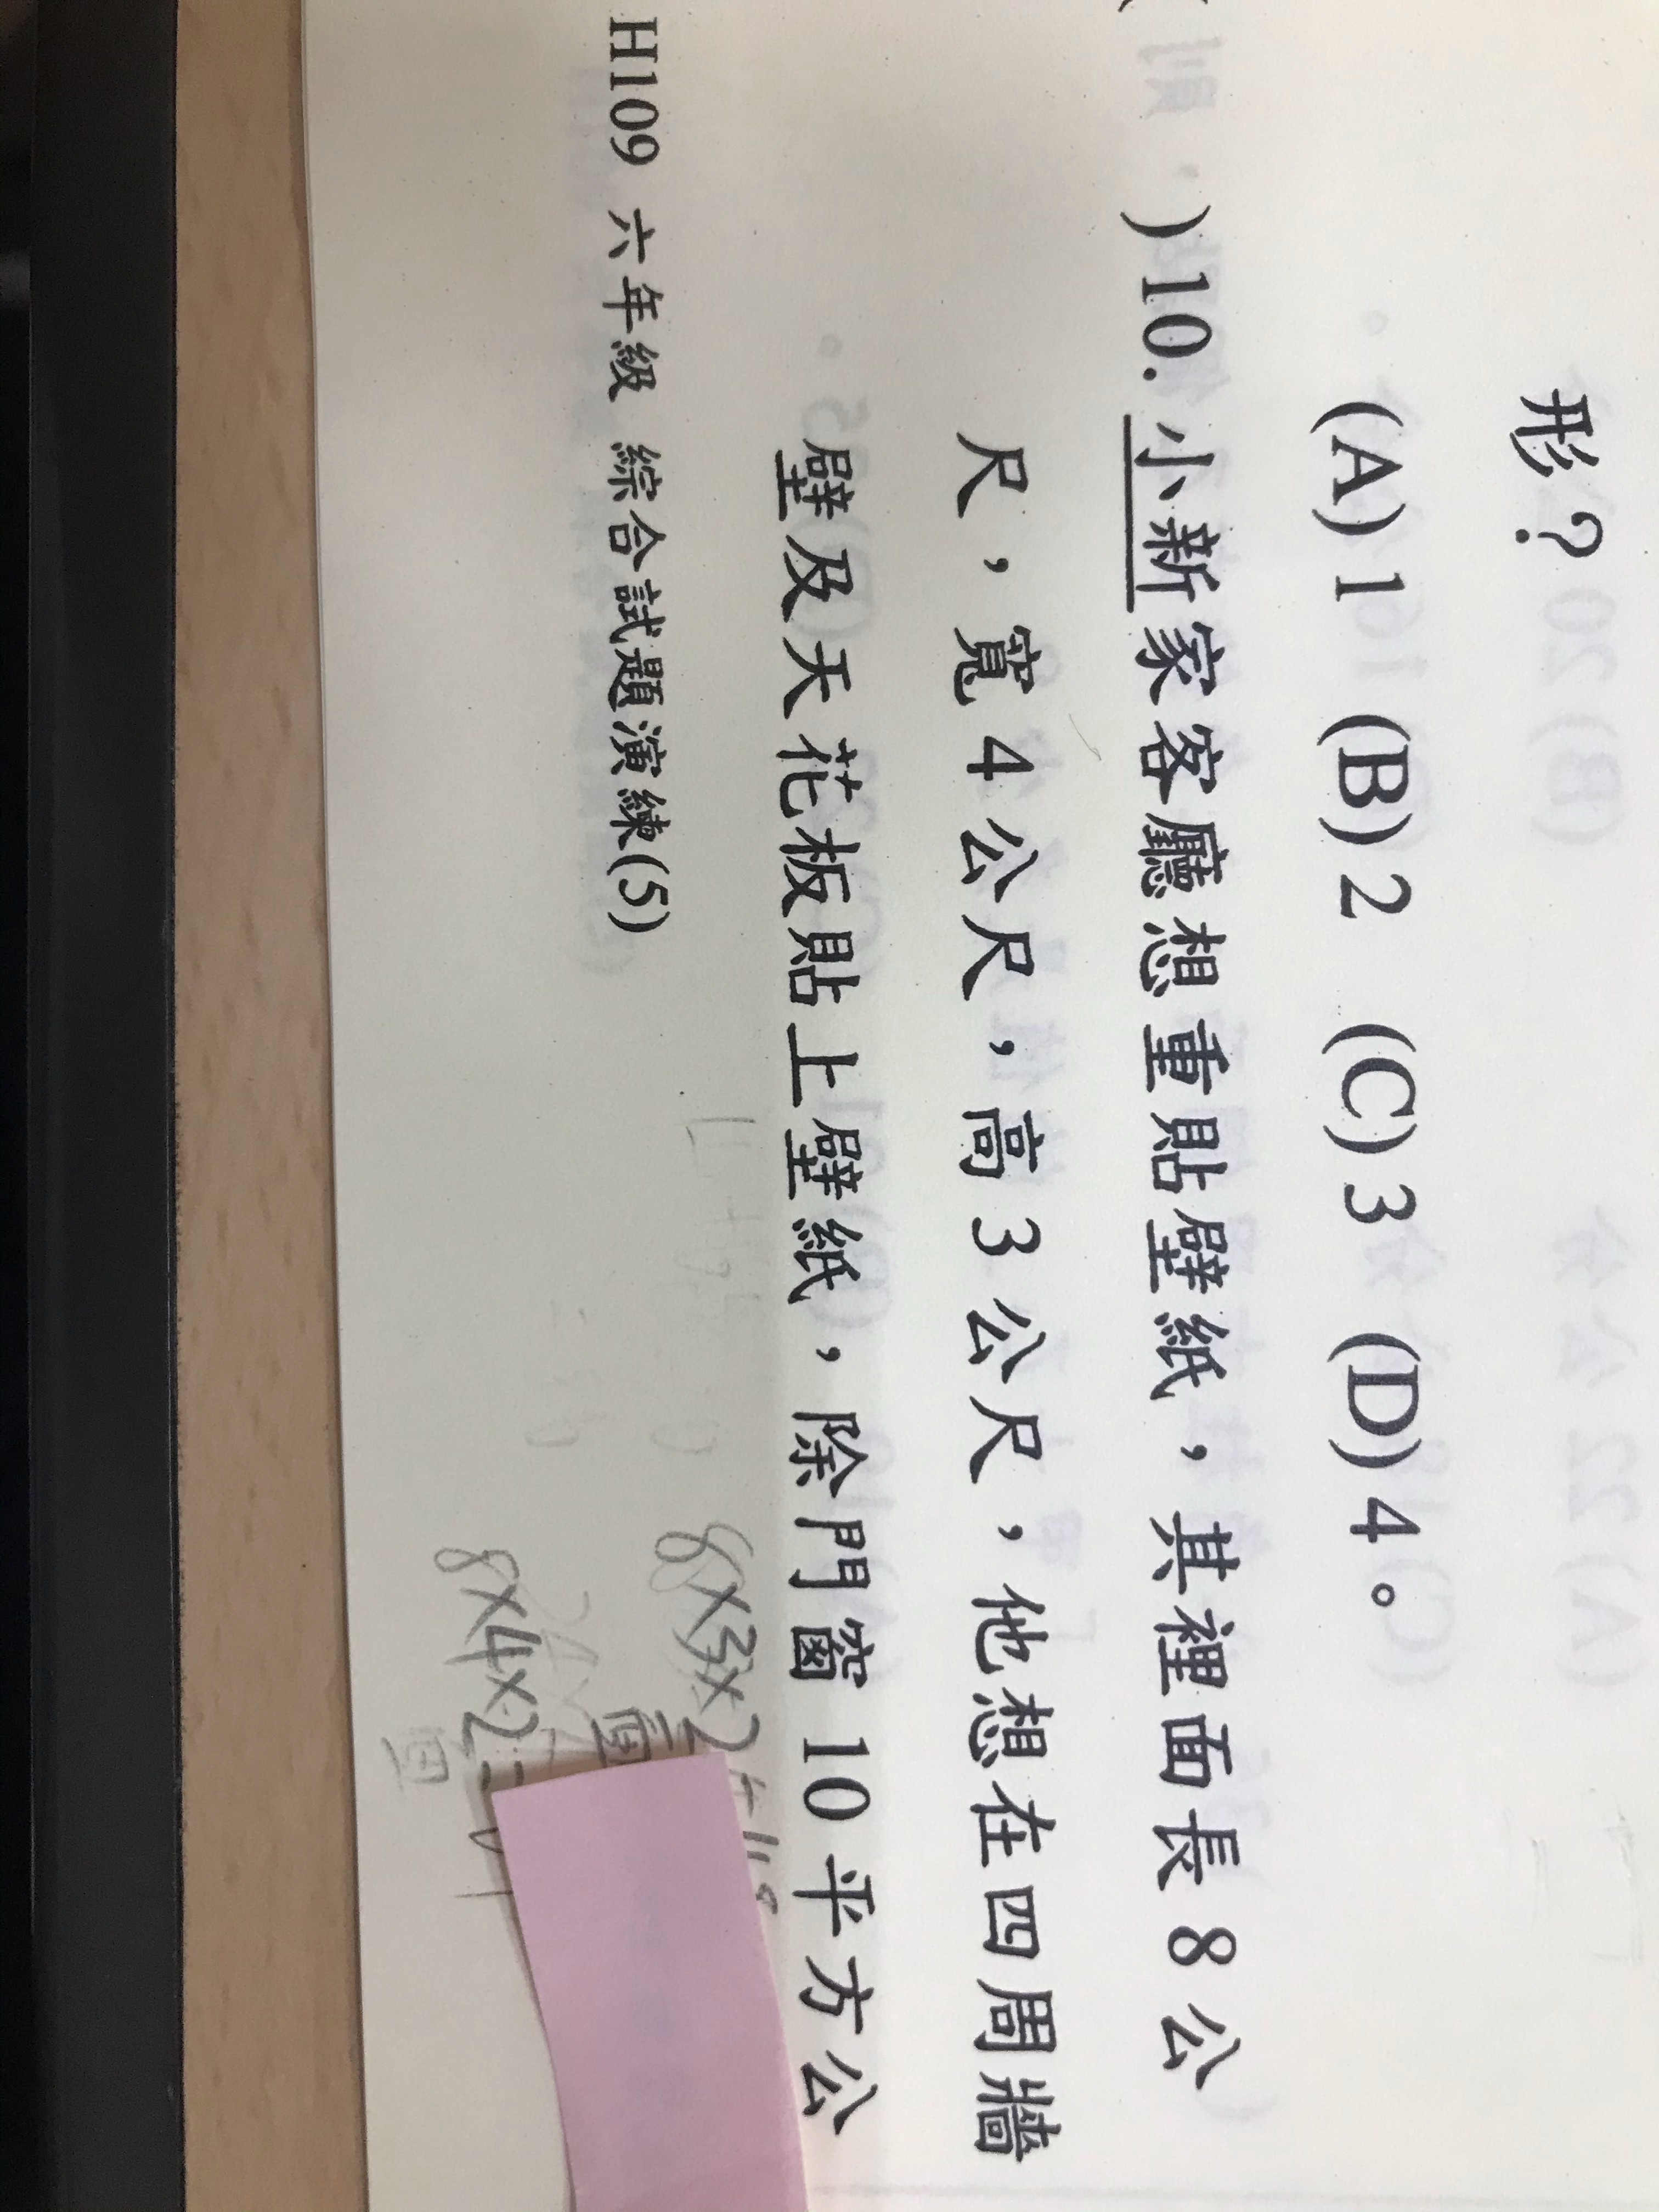 形？
(A) 1 (B) 2 (C) 3 (D) 4。
)10. 小新家客廳想重貼壁紙，其裡面長 8 公
尺，寬 4 公尺，高 3 公尺，他想在四周牆
壁及天花板貼上壁紙，除門窗 10 平方公
H109 六年級 綜合試題演練(5)
8×3×2
8×4×2=